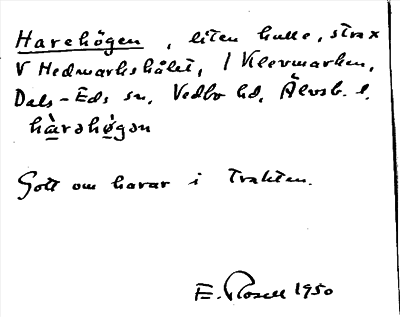 Harehögen, liten kulle, strax
V Hedmarkshålet, i Klevmarken,
Dals-Eds sn, Vedbo hd, Älvsb. l.
hàrəhø̀gən
Gott om harar i trakten.
E. Rosell 1950